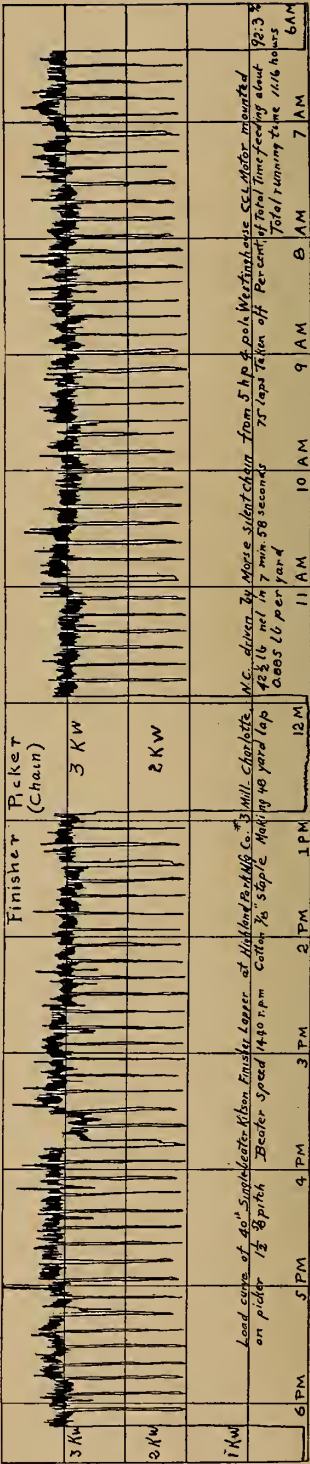 Finisher Picker
(Chain)
3 KW
2 KW
3 KW
2 KW
1 KW
Load curve of 40" Single beater Kitson Finisher Lapper at Highland Park Mfg Co. #3 Mill. Charlotte, N.C. driven by Morse silent chain from 5 hp 4 pole Westinghouse CCL Motor mounted
on picker 1½" pitch Beater speed 1440 r.p.m Cotton 7/8" staple Making 48 yard lap 42½ lb net in 7 min. 58 seconds 75 laps Taken off Percent, of Total Time feeding about 92.3 %
0.885 lb per yard Total running time 11.16 hours
6 PM 5 PM 4 PM 3 PM 2 PM 1 PM 12 M 11 AM 10 AM 9 AM 8 AM 7 AM 6 AM